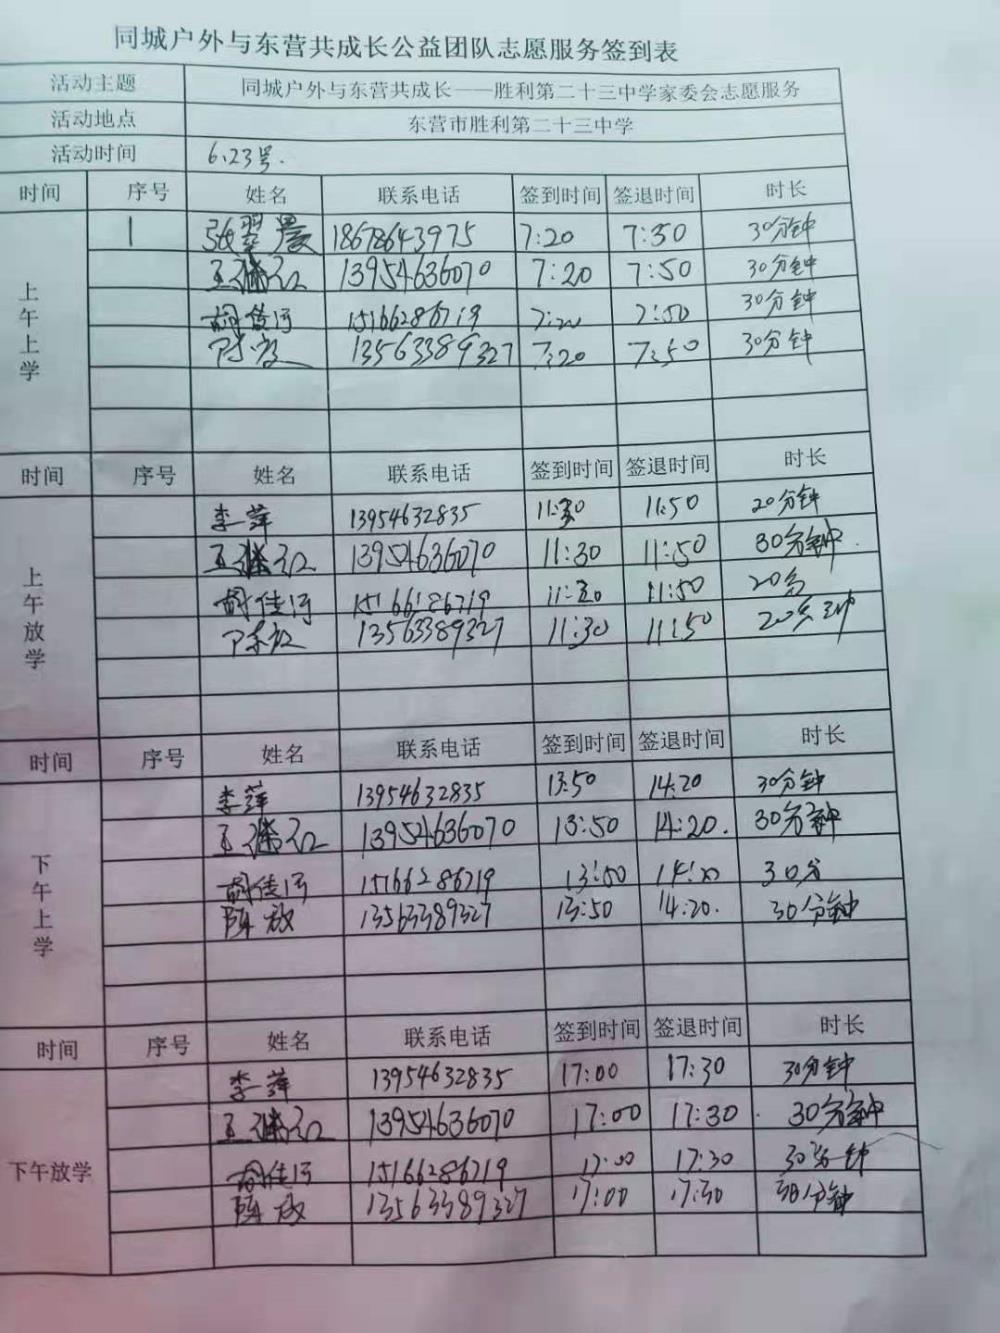 同城户外与东营共成长公益团队志愿服务签到表
活动主题 同城户外与东营共成长——胜利第二十三中学家委会志愿服务
活动地点 东营市胜利第二十三中学
活动时间 6.23号.
时间 序号 姓名 联系电话 签到时间 签退时间 时长
上午上学
1 张翠晨 18678643975 7:20 7:50 30分钟
13954636070 7:20 7:50 30分钟
胡佳河 15166286719 7:20 7:50 30分钟
陈放 13563389327 7:20 7:50 30分钟
时间 序号 姓名 联系电话 签到时间 签退时间 时长
上午放学
李萍 13954632835 11:30 11:50 20分钟
13954636070 11:30 11:50 30分钟.
胡佳河 15166286719 11:30 11:50 20分
陈放 13563389327 11:30 11:50 20分钟
时间 序号 姓名 联系电话 签到时间 签退时间 时长
下午上学
李萍 13954632835 13:50 14:20 30分钟
13954636070 13:50 14:20. 30分钟
胡佳河 15166286719 13:50 14:20 30分
陈放 13563389327 13:50 14:20. 30分钟
时间 序号 姓名 联系电话 签到时间 签退时间 时长
下午放学
李萍 13954632835 17:00 17:30 30分钟
13954636070 17:00 17:30 30分钟
胡佳河 15166286719 17:00 17:30 30分钟
陈放 13563389327 17:00 17:30 30分钟